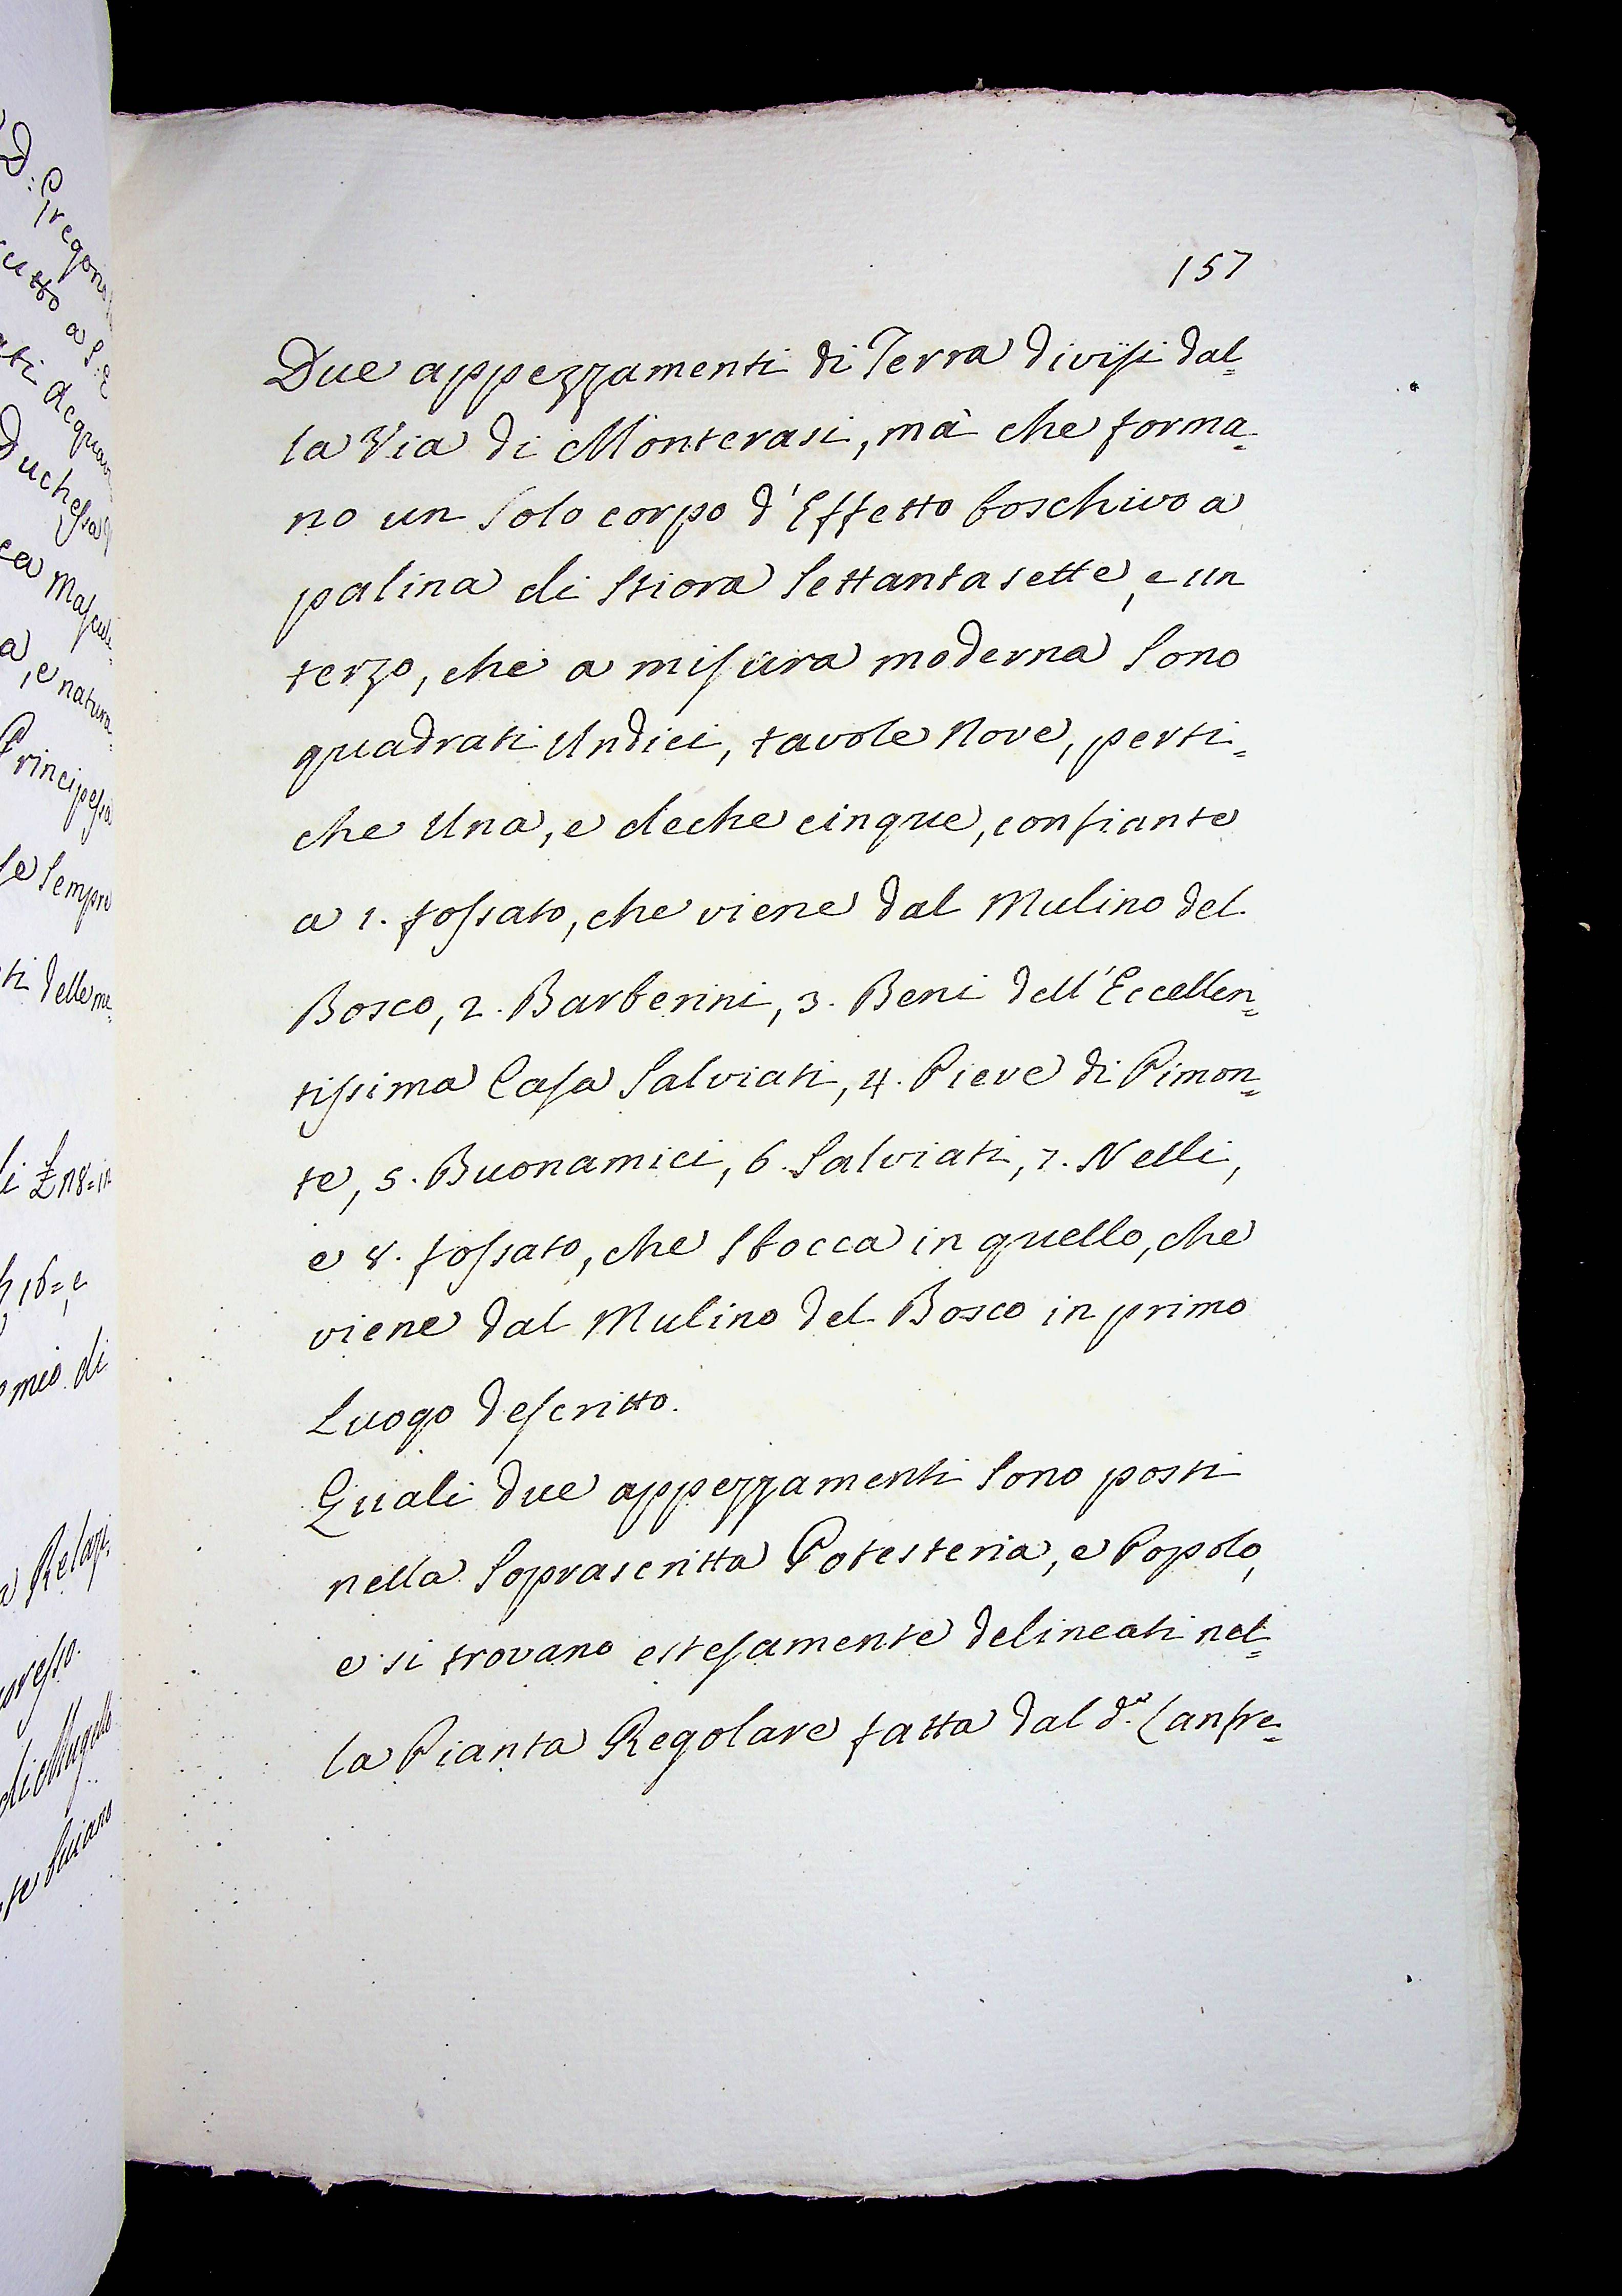 157
Due appezzamenti di Terra divisi dal=
la Via di Monterasi, mà che forma=
no un Solo corpo d'Effetto boschivo a
palina di Stiora Settantasette, e un
terzo, che a misura moderna Sono
quadrati Undici, tavole Nove, perti=
che Una, e deche cinque, confiante
a 1. fossato, che viene dal Mulino del
Bosco, 2. Barberini, 3. Beni dell'Eccellen=
tissima Casa Salviati, 4. Pieve di Pimon=
te, 5. Buonamici, 6. Salviati, 7. Nelli,
e 8. fossato, che Sbocca in quello, che
viene dal Mulino del Bosco in primo
Luogo descritto.
Quali due appezzamenti Sono posti
nella Soprascritta Potesteria, e Popolo,
e si trovano estesamente delineati nel=
la Pianta Regolare fatta dal d.º Lanfre=